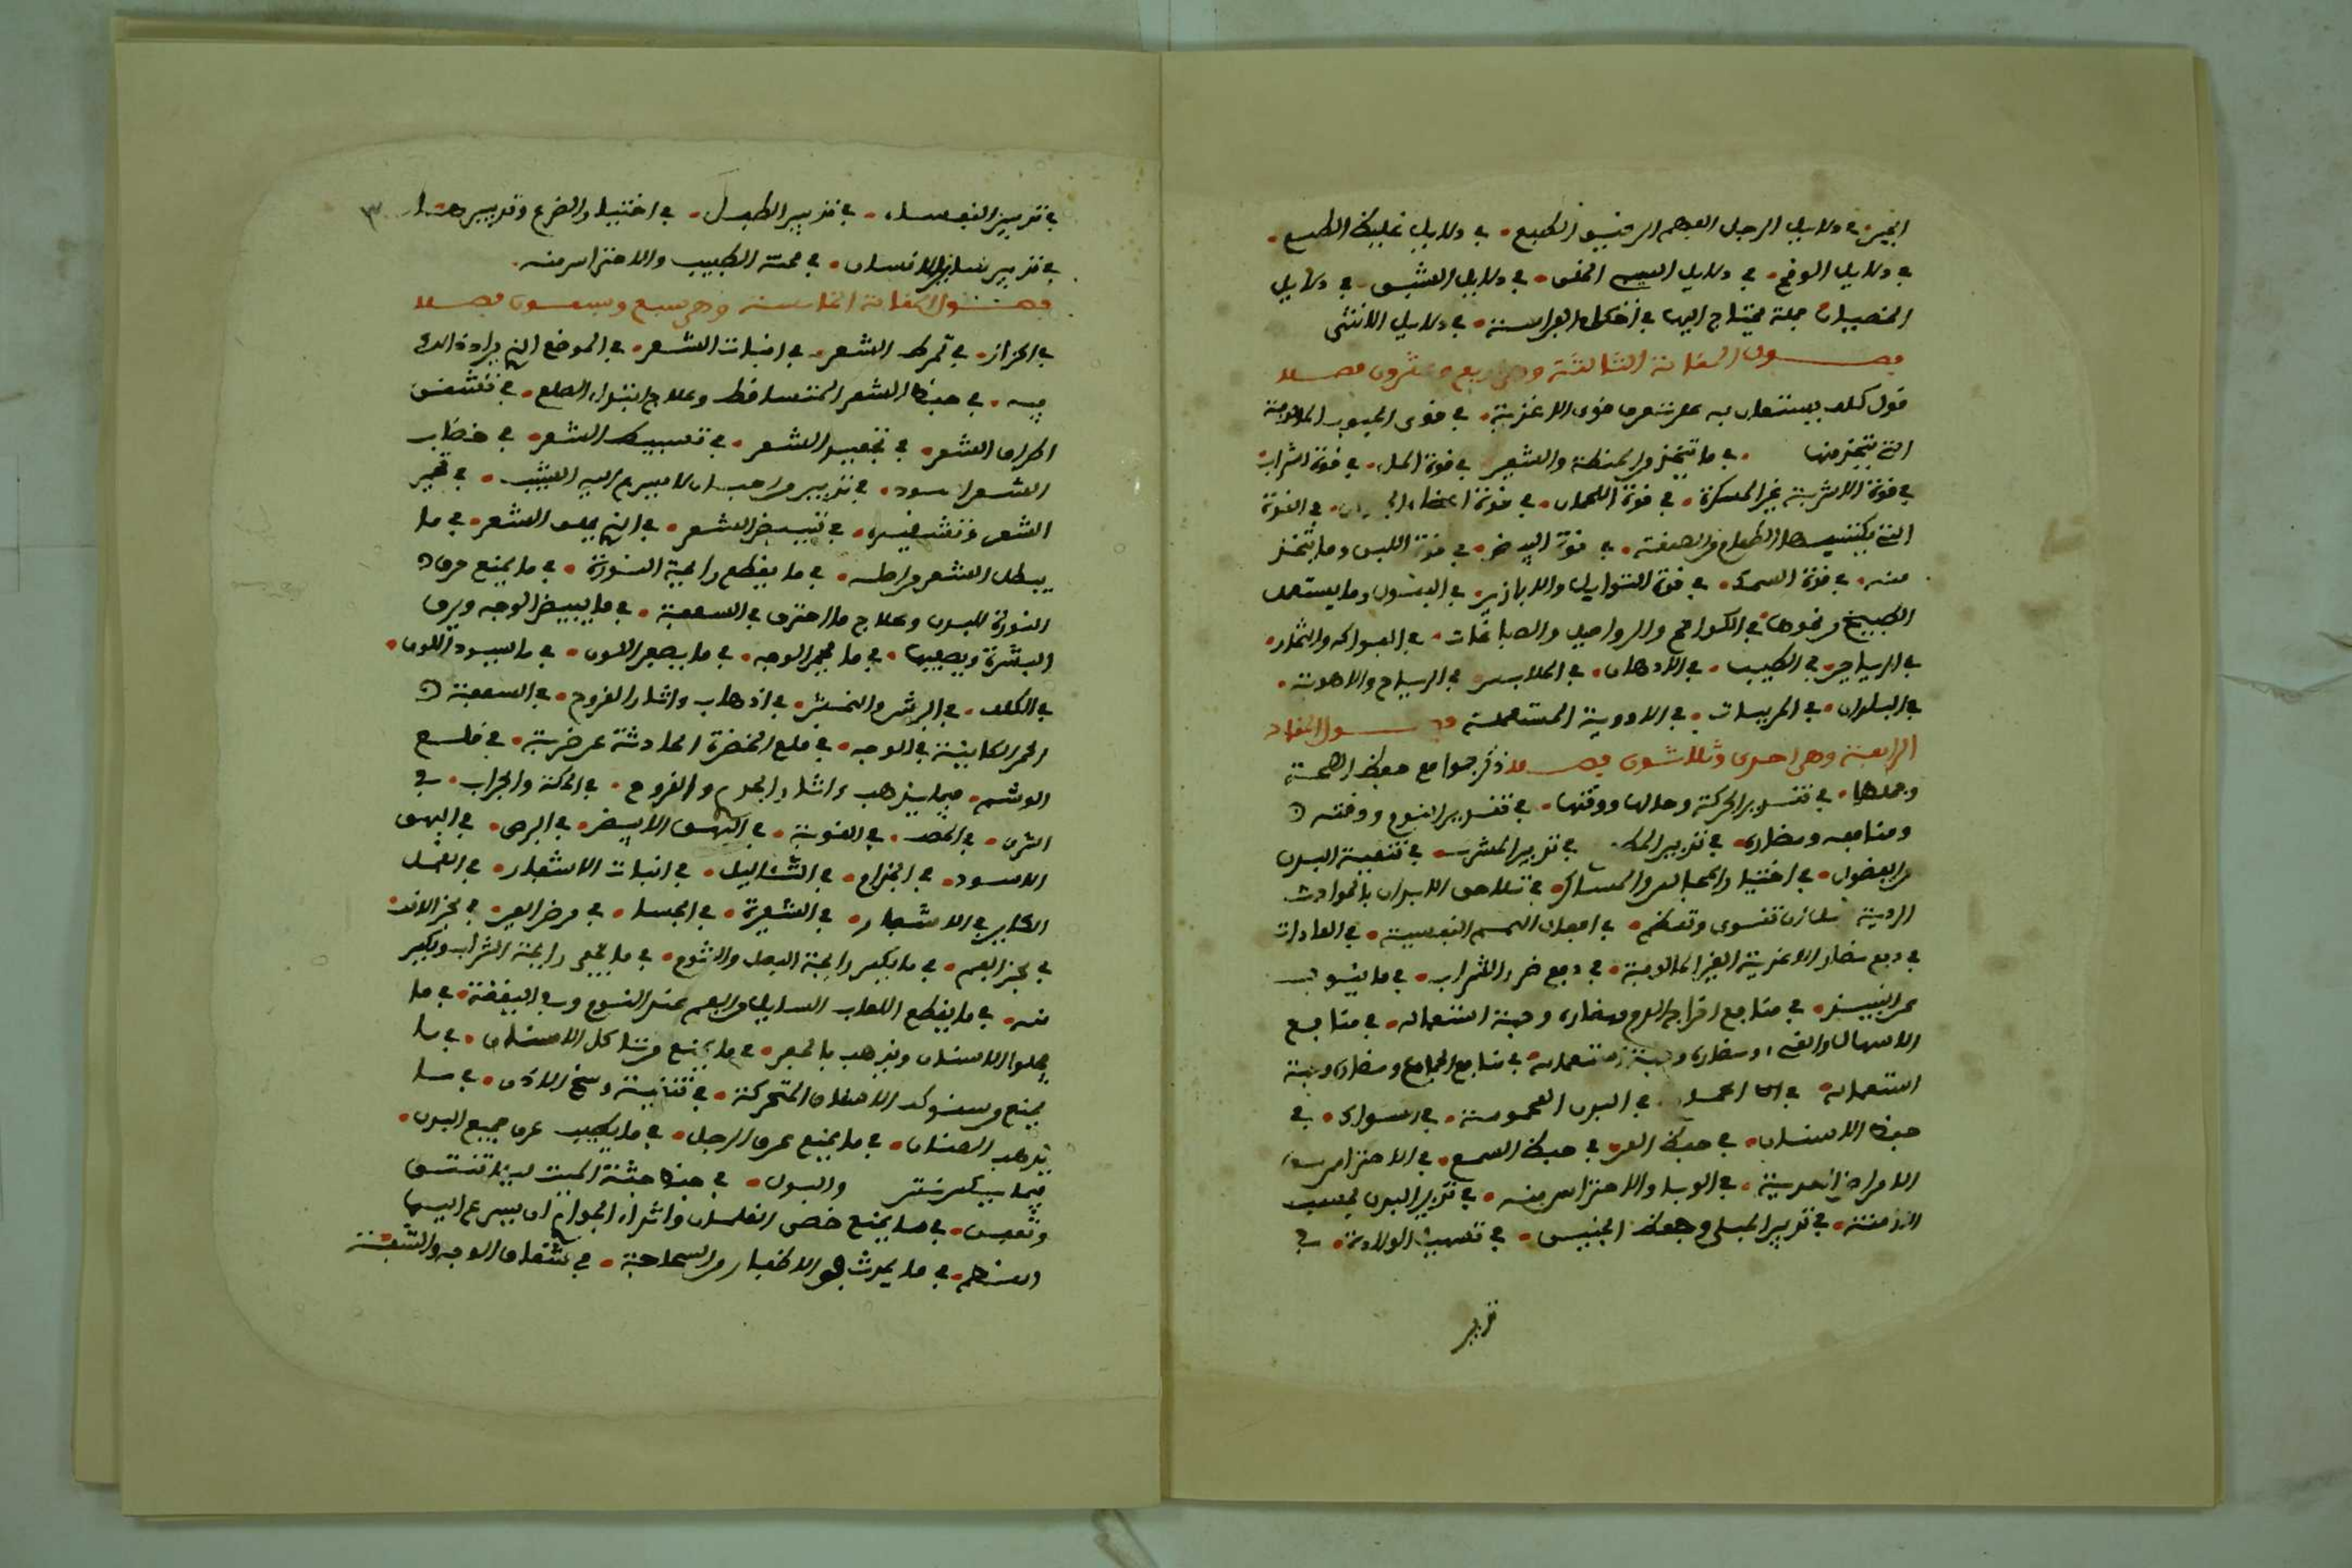 الخير في دلايل الرجل الفهم الرقيق الطبع في دلايل غليظ الطبع
في دلايل الوقح في دلايل السي الخلق في دلايل العشق في دلايل
الخصيان جملة يحتاج اليها في احكام الفراسة في دلايل الانثى
فصول المقالة الثالثة وهي اربع وعشرون فصلا
قول كلي يستعان به على تعرف قوى الاغذية في قوى الحبوب المالوفة
التي يتخذ منها في ما يتخذ من الحنطة والشعير في قوة الماء في قوة الشراب
في قوة الاشربة غير المسكرة في قوة اللحمان في قوة اعضاء الحيوان في القوة
التي يكتسبها الطعام من الصنعة في قوة البيض في قوة اللبن وما يتخذ
منه في قوة السمك في قوة التوابل والابازير في البقول وما يستعمل
الطبيخ ونحوها في الكوامخ والرواصيل والصباغات في الفواكه والثمار
في الرياحين في الطيب في الادهان في الملابس في الرياح والاهوية
في البلدان في المربيات في الادوية المستعملة فصول المقالة
الرابعة وهي احدى وثلاثون فصلا ذكر جوامع حفظ الصحة
وجملها في تقدير الحركة وحالها ووقتها في تقدير النوم ووقته
ومنافعه ومضاره في تدبير المطعم في تدبير المشرب في تنقية البدن
من الفضول في اختيار المجالس والمساكن في تلاحق الابدان بالحوادث
الردية قبل ان تقوى وتعظم في افعال الهمم النفسية في العادات
في دفع مضار الاغذية الغير المالوفة في دفع ضرر الشراب في ما ينوب
عن النبيذ في منافع اخراج الدم ومضاره وجهة استعماله في منافع
الاسهال والقي ومضاره وجهة استعماله في منافع الجماع ومضاره وجهة
استعماله في الحمام في البدن العمومة في السواك في
حفظ الاسنان في حفظ العين في حفظ السمع في الاحتراس من
الامراض المعدية في الوبا والاحتراس منه في تدبير البدن بحسب
الازمنة في تدبير الحبلى وحفظ الجنين في تسهيل الولادة في
تدبير
في تدبير النفساء في تدبير الطفل في اختيار الضرع وتدبيرها ٣
في تدبير سائر الانسان في محنة الطبيب والاحتراس منه
فصول المقالة الخامسة وهي سبع وسبعون فصلا
في الحزاز في تمرط الشعر في انبات الشعر في الموضع الذي يراد ذلك
فيه في حفظ الشعر المتساقط وعلاج ابتداء الصلع في تشقق
اطراف الشعر في تجعيد الشعر في تسبيط الشعر في خضاب
الشعر اسود في تدبير من احب ان لا يسرع اليه الشيب في تحمير
الشعر وتشقيره في تبييض الشعر في الذي يحلق الشعر في ما
يبطل الشعر من اصله في ما يقطع رايحة النورة في ما يمنع حرق
النورة للبدن وعلاج ما احترق في السعفة في ما يبيض الوجه ويرق
البشرة ويصفيها في ما يحمر الوجه في ما يصفر اللون في ما يسود اللون
في الكلف في البرش والنمش في اذهاب واثار القروح في السعفة
الحمر الكاينة في الوجه في قلع الخضرة الحادثة عن ضربة في قلع
الوشم فيما يذهب اثار الجدري والقروح في الحكة والجرب في
الشرى في الحصف في القوبة في البهق الابيض في البرص في البهق
الاسود في الجذام في الثاليل في انبات الاشفار في القمل
الكاين في الاشفار في الشعيرة في الجسا في مرض العين في بخر الانف
في بخر الفم في ما يكسر رايحة البصل والثوم في ما يخفي رايحة الشراب ويكسر
منه في ما يقطع اللعاب السايل من الفم عند النوم وفي اليقظة في ما
يجلوا الاسنان ويذهب بالحفر في ما يمنع من تاكل الاسنان في ما
يمنع من سقوط الاسنان المتحركة في تنقية وسخ الاذن في ما
يذهب الصنان في ما يمنع عرق الرجل في ما يطيب عرق جميع البدن
فيما يكسر نتن والبول في حفظ جثة الميت لئلا تنتن
وتعفن في ما يمنع خصى الغلمان واثداء الجواري ان يسرع اليها
العظم في ما يحدث في الاظفار من السماجة في شقاق الوجه والشفة